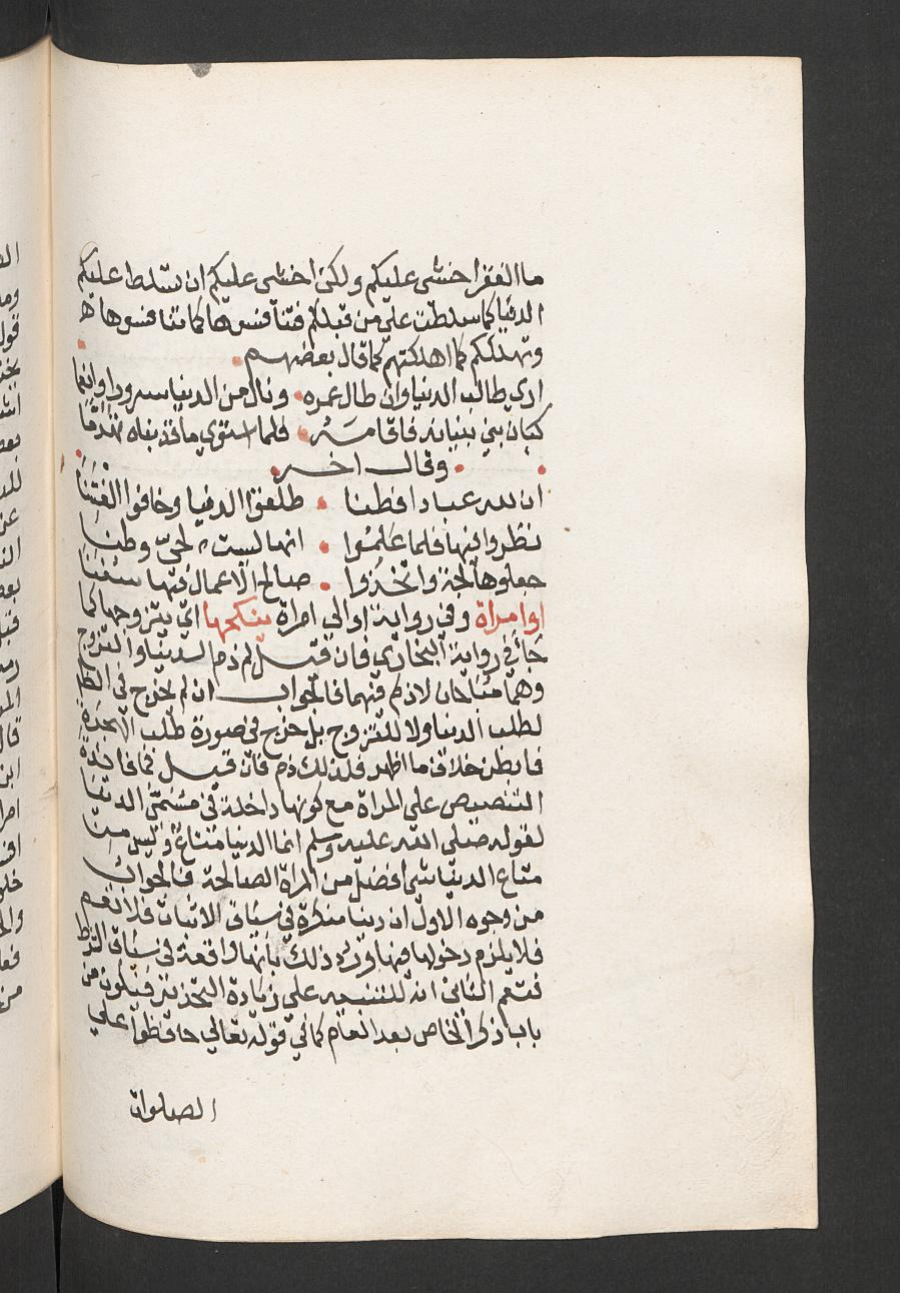 ما الفقر اخشى عليكم ولكن اخشى عليكم ان تتسلط عليكم
الدنيا كما سلطت على من قبلكم فتنافسوها كما تنافسوها
وتهلككم كما اهلكتهم كما قال بعضهم
ارى طالب الدنيا وان طال عمره ونال من الدنيا سرورا وانعما
كبان بنى بنيانه فاقامه فلما استوى ما قد بناه تهدما
وقال اخر
ان لله عبادا فطنا طلقوا الدنيا وخافوا الفتنا
نظروا فيها فلما علموا انها ليست لحيّ وطنا
جعلوها لجة واتخذوا صالح الاعمال فيها سفنا
او امراة وفي رواية او الى امراة ينكحها اي يتزوجها كما
جا في رواية البخاري فان قيل لم ذم الدنيا والتزوج
وهما مباحان لا ذم فيهما فالجواب انه لم يخرج في الظ
لطلب الدنيا ولا للتزوج بل خرج في صورة طلب الاخرة
فابطن خلاف ما اظهر فلذلك ذم فان قيل فما فائدة
التنصيص على المراة مع كونها داخلة في مسمى الدنيا
لقوله صلى الله عليه وسلم انما الدنيا متاع وليس من
متاع الدنيا شي افضل من المراة الصالحة فالجواب
من وجوه الاول ان دنيا منكرة في سياق الاثبات فلا تعم
فلا يلزم دخولها فيها ورد ذلك بانها واقعة في سياق الشرط
فتعم الثاني انه للتنبيه على زيادة التحذير فيكون من
باب ذكر الخاص بعد العام كما في قوله تعالى حافظوا على
الصلوات